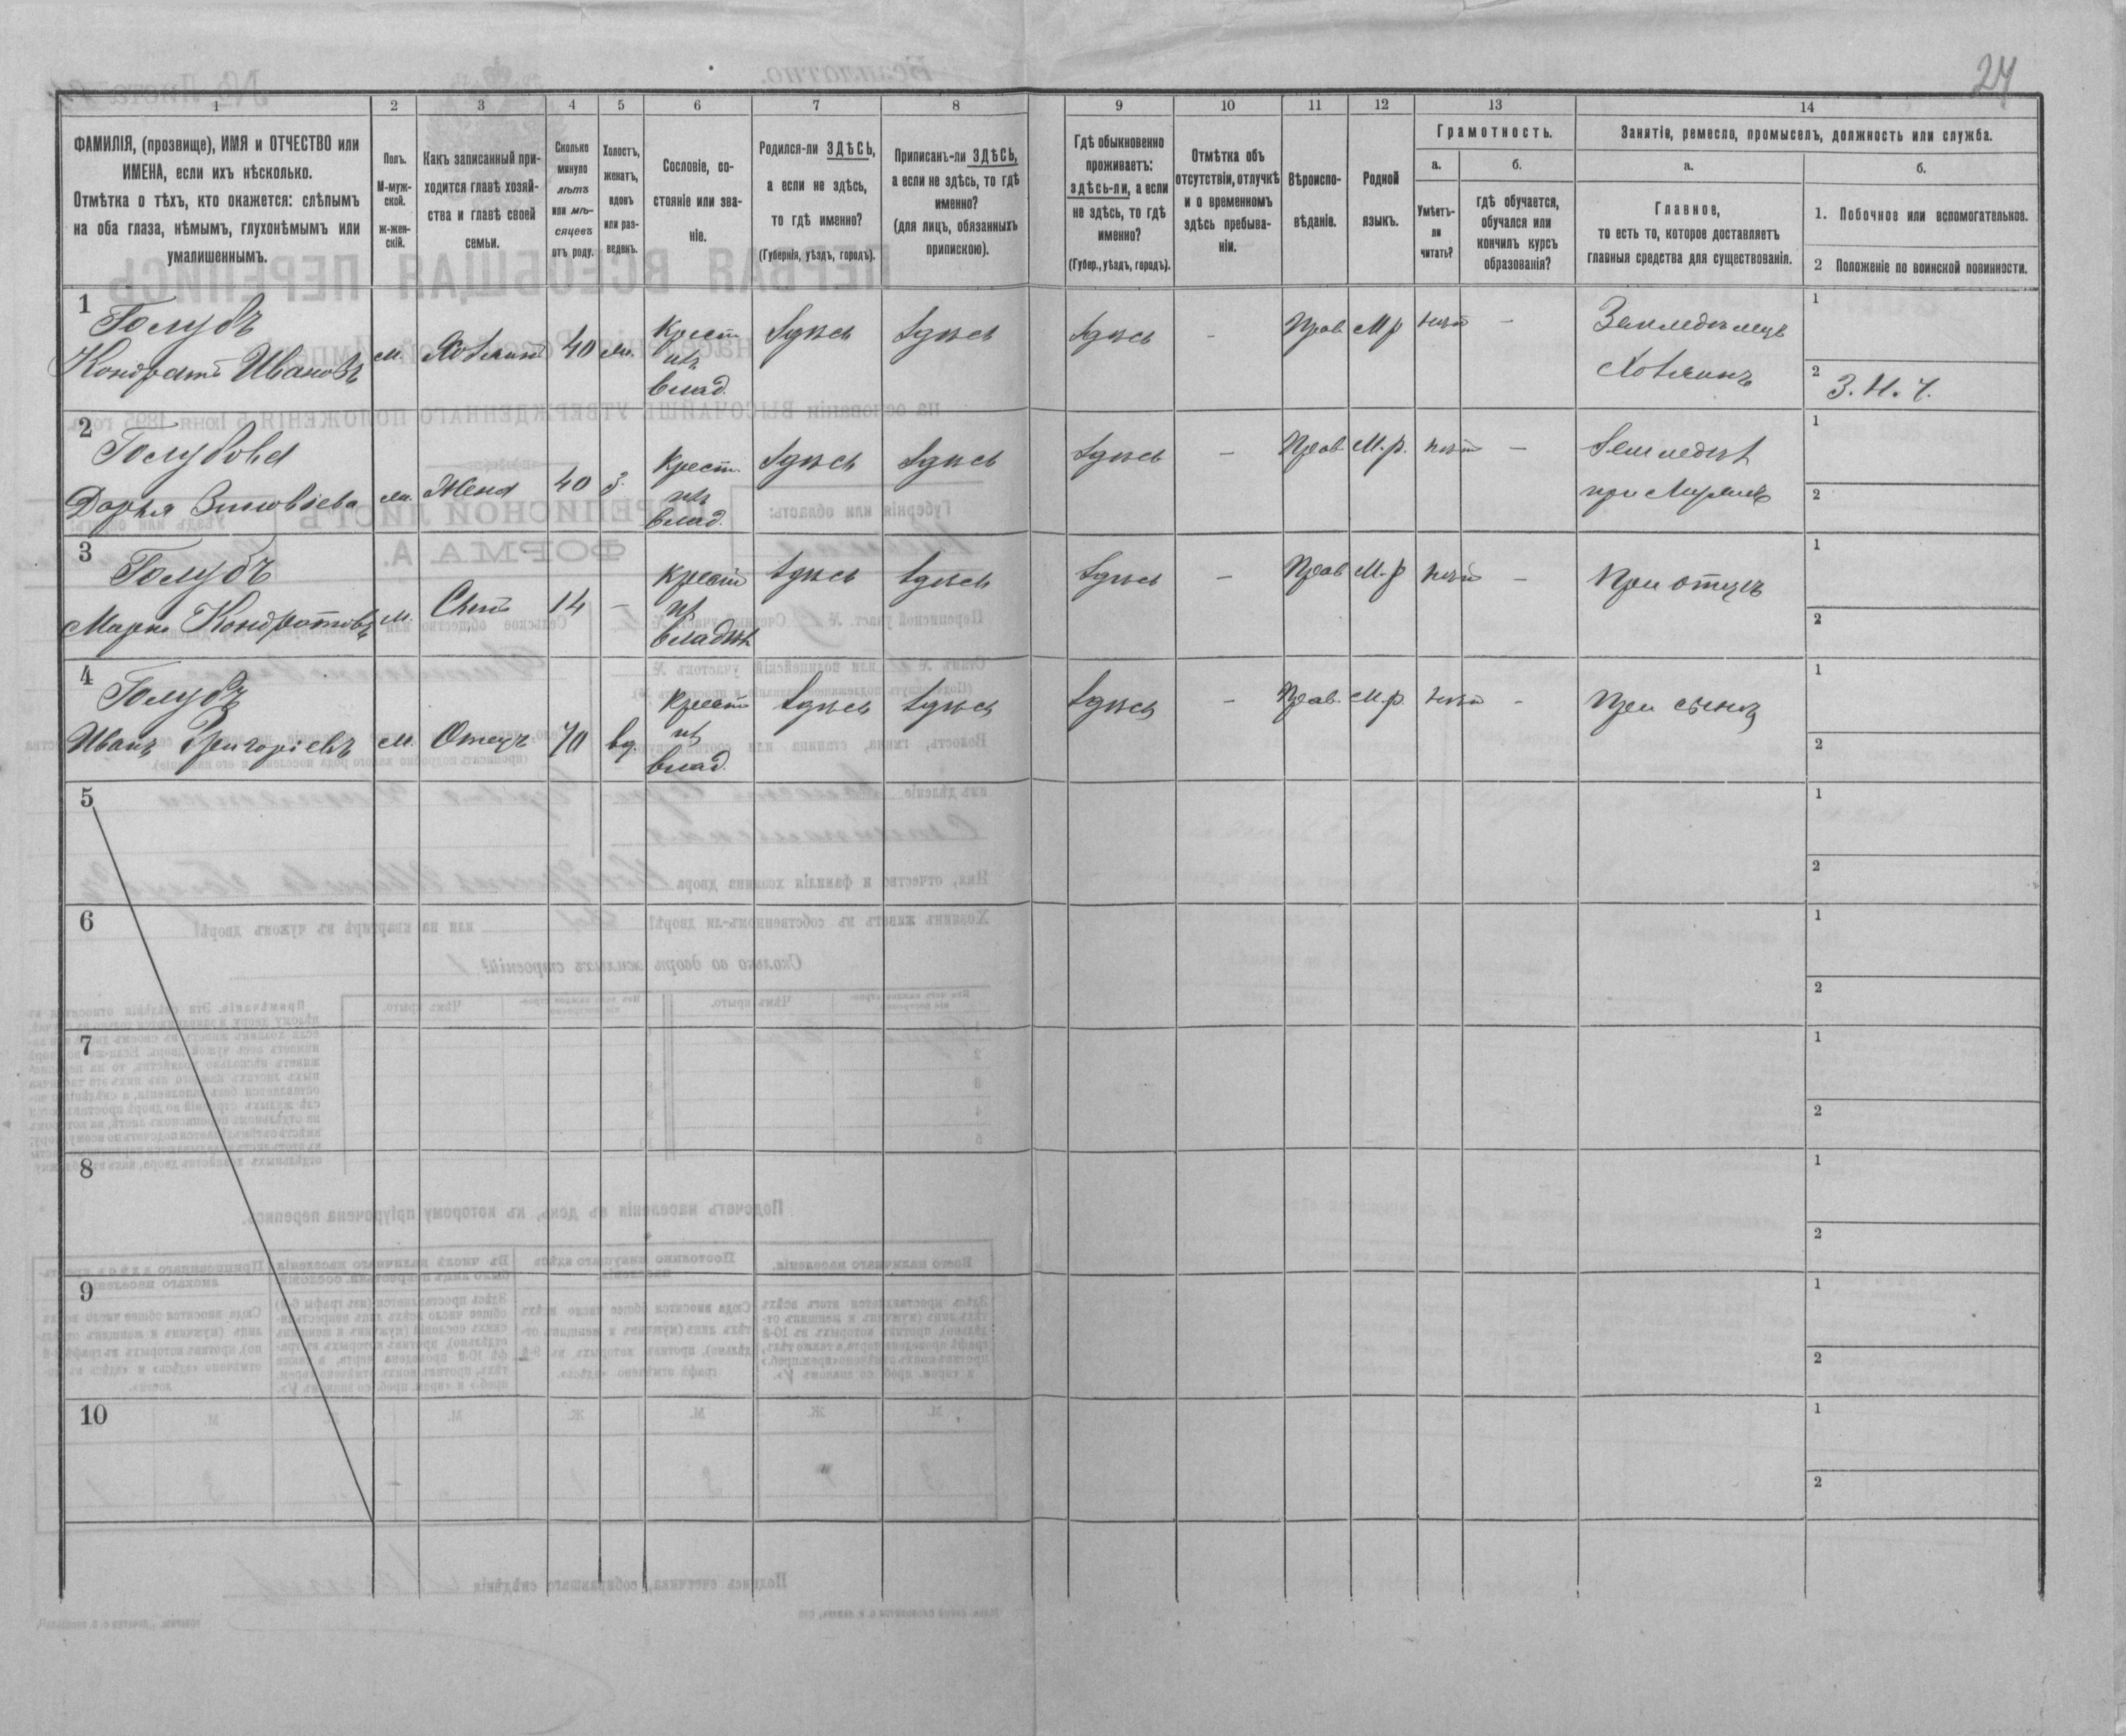 24
1 2 3 4 5 6 7 8 9 10 11 12 13 14
ФАМИЛІЯ, (прозвище), ИМЯ и ОТЧЕСТВО или
ИМЕНА, если ихъ нѣсколько.
Отмѣтка о тѣхъ, кто окажется: слѣпымъ
на оба глаза, нѣмымъ, глухонѣмымъ или
умалишеннымъ.
Полъ.
М-муж-
ской.
ж-жен-
скій.
Какъ записанный при-
ходится главѣ хозяй-
ства и главѣ своей
семьи.
Сколько
минуло
лѣтъ
или мѣ-
сяцевъ
отъ роду.
Холостъ,
женатъ,
вдовъ
или раз-
веденъ.
Сословіе, со-
стояніе или зва-
ніе.
Родился-ли ЗДѢСЬ,
а если не здѣсь,
то гдѣ именно?
(Губернія, уѣздъ, городъ).
Приписанъ-ли ЗДѢСЬ,
а если не здѣсь, то гдѣ
именно?
(для лицъ, обязанныхъ
припискою).
Гдѣ обыкновенно
проживаетъ:
здѣсь-ли, а если
не здѣсь, то гдѣ
именно?
(Губер., уѣздъ, городъ).
Отмѣтка объ
отсутствіи, отлучкѣ
и о временномъ
здѣсь пребыва-
ніи.
Вѣроиспо-
вѣданіе.
Родной
языкъ.
Грамотность.
а.
Умѣетъ-
ли
читать?
б.
гдѣ обучается,
обучался или
кончилъ курсъ
образованія?
Занятіе, ремесло, промыселъ, должность или служба.
а.
Главное,
то есть то, которое доставляетъ
главныя средства для существованія.
б.
1. Побочное или вспомогательное.
2 Положеніе по воинской повинности.
1
Голубъ
Кондратъ Ивановъ
м. Хозяинъ 40 жн.
Крест.
изъ
влад.
Здѣсь Здѣсь Здѣсь - Прав М р нѣтъ -
Земледѣлецъ
Хозяинъ
1
2 З. Н. Ч.
2
Голубова
Дарья Зиновіева
жн. Жена 40 З.
Крест.
изъ
влад.
Здѣсь Здѣсь Здѣсь - Прав. М. р. нѣтъ -
Земледѣл
при мужѣ
1
2
3
Голубъ
Марко Кондратовъ
м. Сынъ 14 -
Крест
изъ
владѣл
Здѣсь Здѣсь Здѣсь - Прав М. р нѣтъ -
При отцѣ
1
2
4
Голубъ
Иванъ Григоріевъ
м. Отецъ 70 вд.
Крест
изъ
влад.
Здѣсь Здѣсь Здѣсь - Прав. М. р. нѣтъ -
При сынѣ
1
2
5
1
2
6
1
2
7
1
2
8
1
2
9
1
2
10
1
2